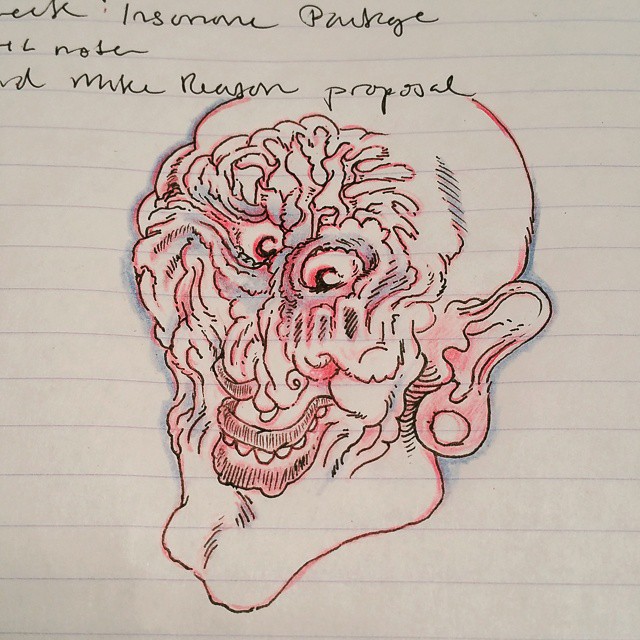 eek: Insomnia Package
notes
Mike Reason proposal